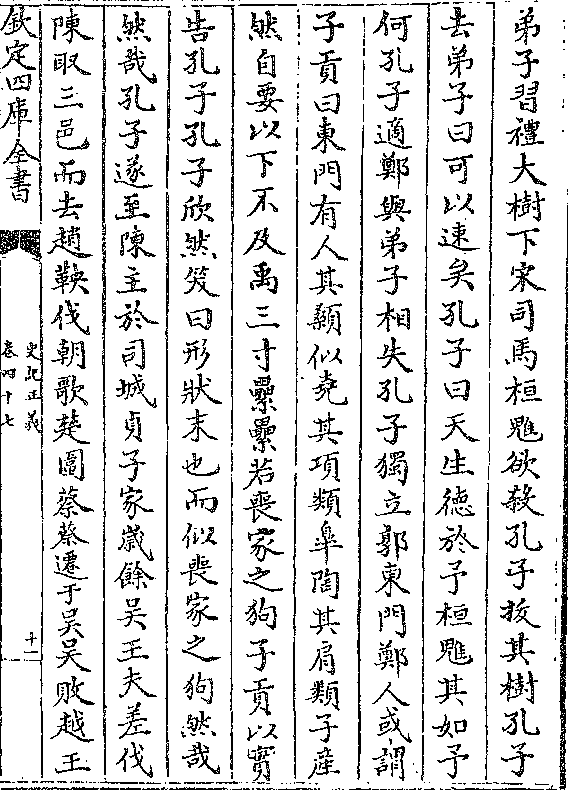 弟子習禮大樹下宋司馬桓魋欲殺孔子拔其樹孔子
去弟子曰可以速矣孔子曰天生德於予桓魋其如予
何孔子適鄭與弟子相失孔子獨立郭東門鄭人或謂
子貢曰東門有人其顙似堯其項類臯陶其肩類子產
然自要以下不及禹三寸纍纍若喪家之狗子貢以實
告孔子孔子欣然笑曰形狀末也而似喪家之狗然哉
然哉孔子遂至陳主於司城貞子家歳餘吴王夫差伐
陳取三邑而去趙鞅伐朝歌楚圍蔡蔡遷于吴吴敗越王
欽定四庫全書
史記正義
卷四十七
十一